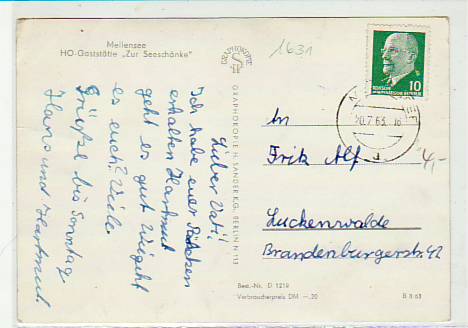 Mellensee
HO-Gaststätte „Zur Seeschänke“
1631
GRAPHOKOPIE
GRAPHOKOPIE H. SANDER K.G., BERLIN N 113
10
DEUTSCHE
DEMOKRATISCHE REPUBLIK
20.7.63. 16
Lieber Vati!
Ich habe euer Päckchen
erhalten Hartmut
geht es gut Wie geht
es euch? Viele
Grüße bis Sonntag
Hans und Hartmut
An
Fritz Alf
4,-
Luckenwalde
Brandenburgerstr. 42
Best.-Nr. D 1219
Verbraucherpreis DM —,20
B 8 63